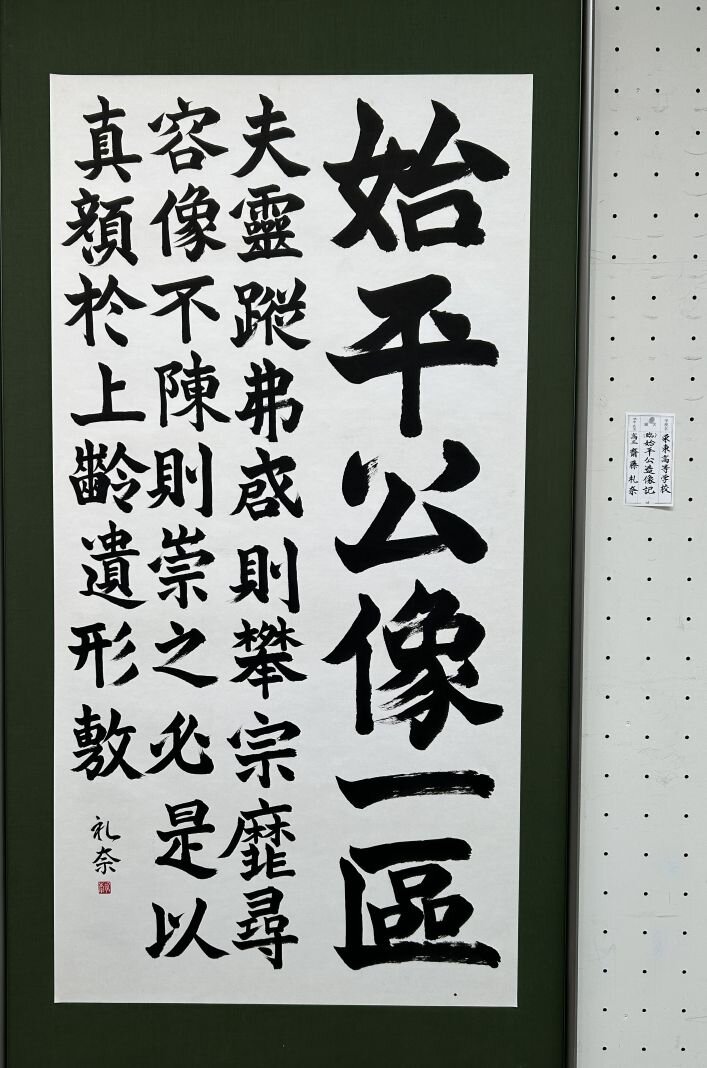 始平公像一區
夫靈蹤弗啓則攀宗靡尋
容像不陳則崇之必是以
真顏於上齡遺形敷
礼奈
栄東高等学校
臨始平公造像記
齋藤礼奈